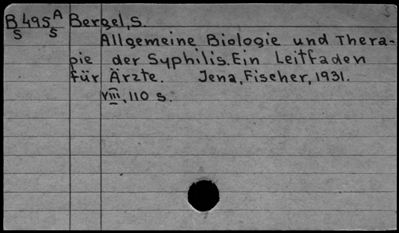 B495A Bergel, S.
S S
Allgemeine Biologie und Thera-
pie der Syphilis. Ein Leitfaden
für Ärzte. Jena, Fischer, 1931.
VIII, 110 s.